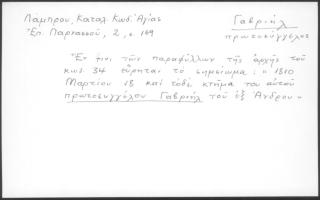 Λάμπρου, Καταλ. Κωδ. Ἁγίας
Ἐπ. Παρνασσοῦ, 2, σ. 169
Γαβριήλ
πρωτοσύγγελος
Ἔν τινι τῶν παραφύλλων τῆς ἀρχῆς τοῦ
κωδ. 34 εὕρηται τὸ σημείωμα: « 1810
Μαρτίου ιβ καὶ τόδε κτῆμα τοῦ αὐτοῦ
πρωτοσυγγέλου Γαβριὴλ τοῦ ἐξ Ἄνδρου »